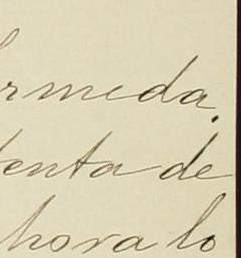 rmeda.
tenta de
hora lo